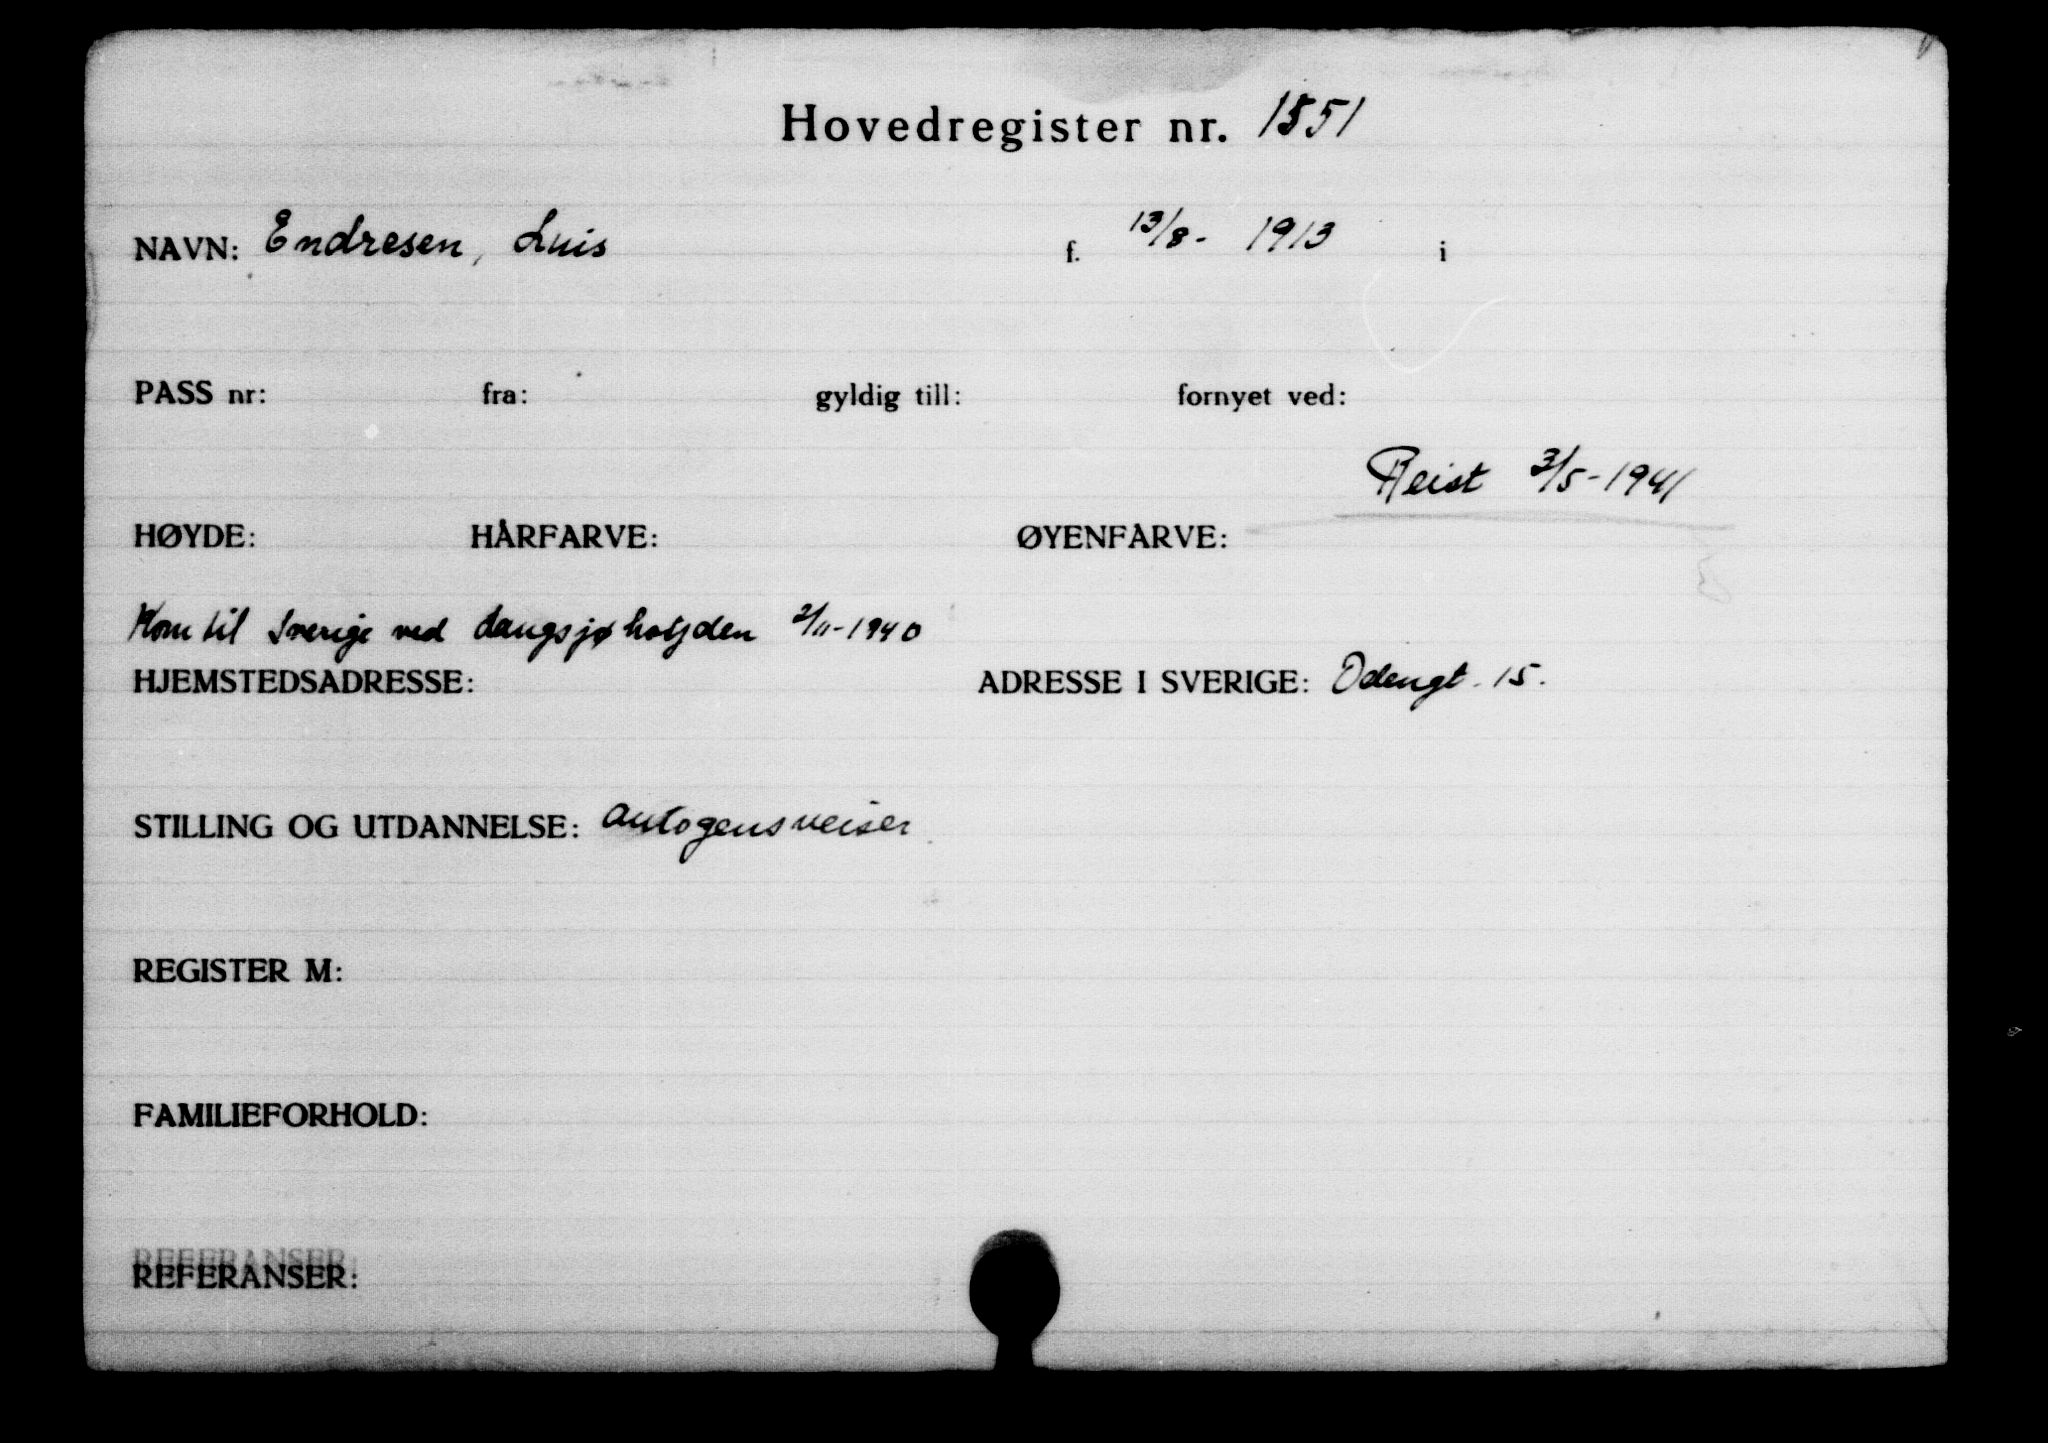 Hovedregister nr. 1551
NAVN: Endresen, Luis f. 13/8- 1913 i
PASS nr: fra: gyldig till: fornyet ved:
Reist 3/5-1941
HØYDE: HÅRFARVE: ØYENFARVE:
Kom til Sverige ved 2/11-1940
HJEMSTEDSADRESSE: ADRESSE I SVERIGE: Odengt. 15.
STILLING OG UTDANNELSE: autogensveiser
REGISTER M:
FAMILIEFORHOLD:
REFERANSER: